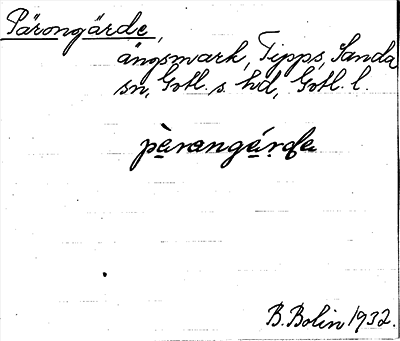 Pärongärde,
ängsmark, Tipps, Sanda
sn, Gotl. s. hd, Gotl. l.
pèrangárda
B. Bolin 1932.